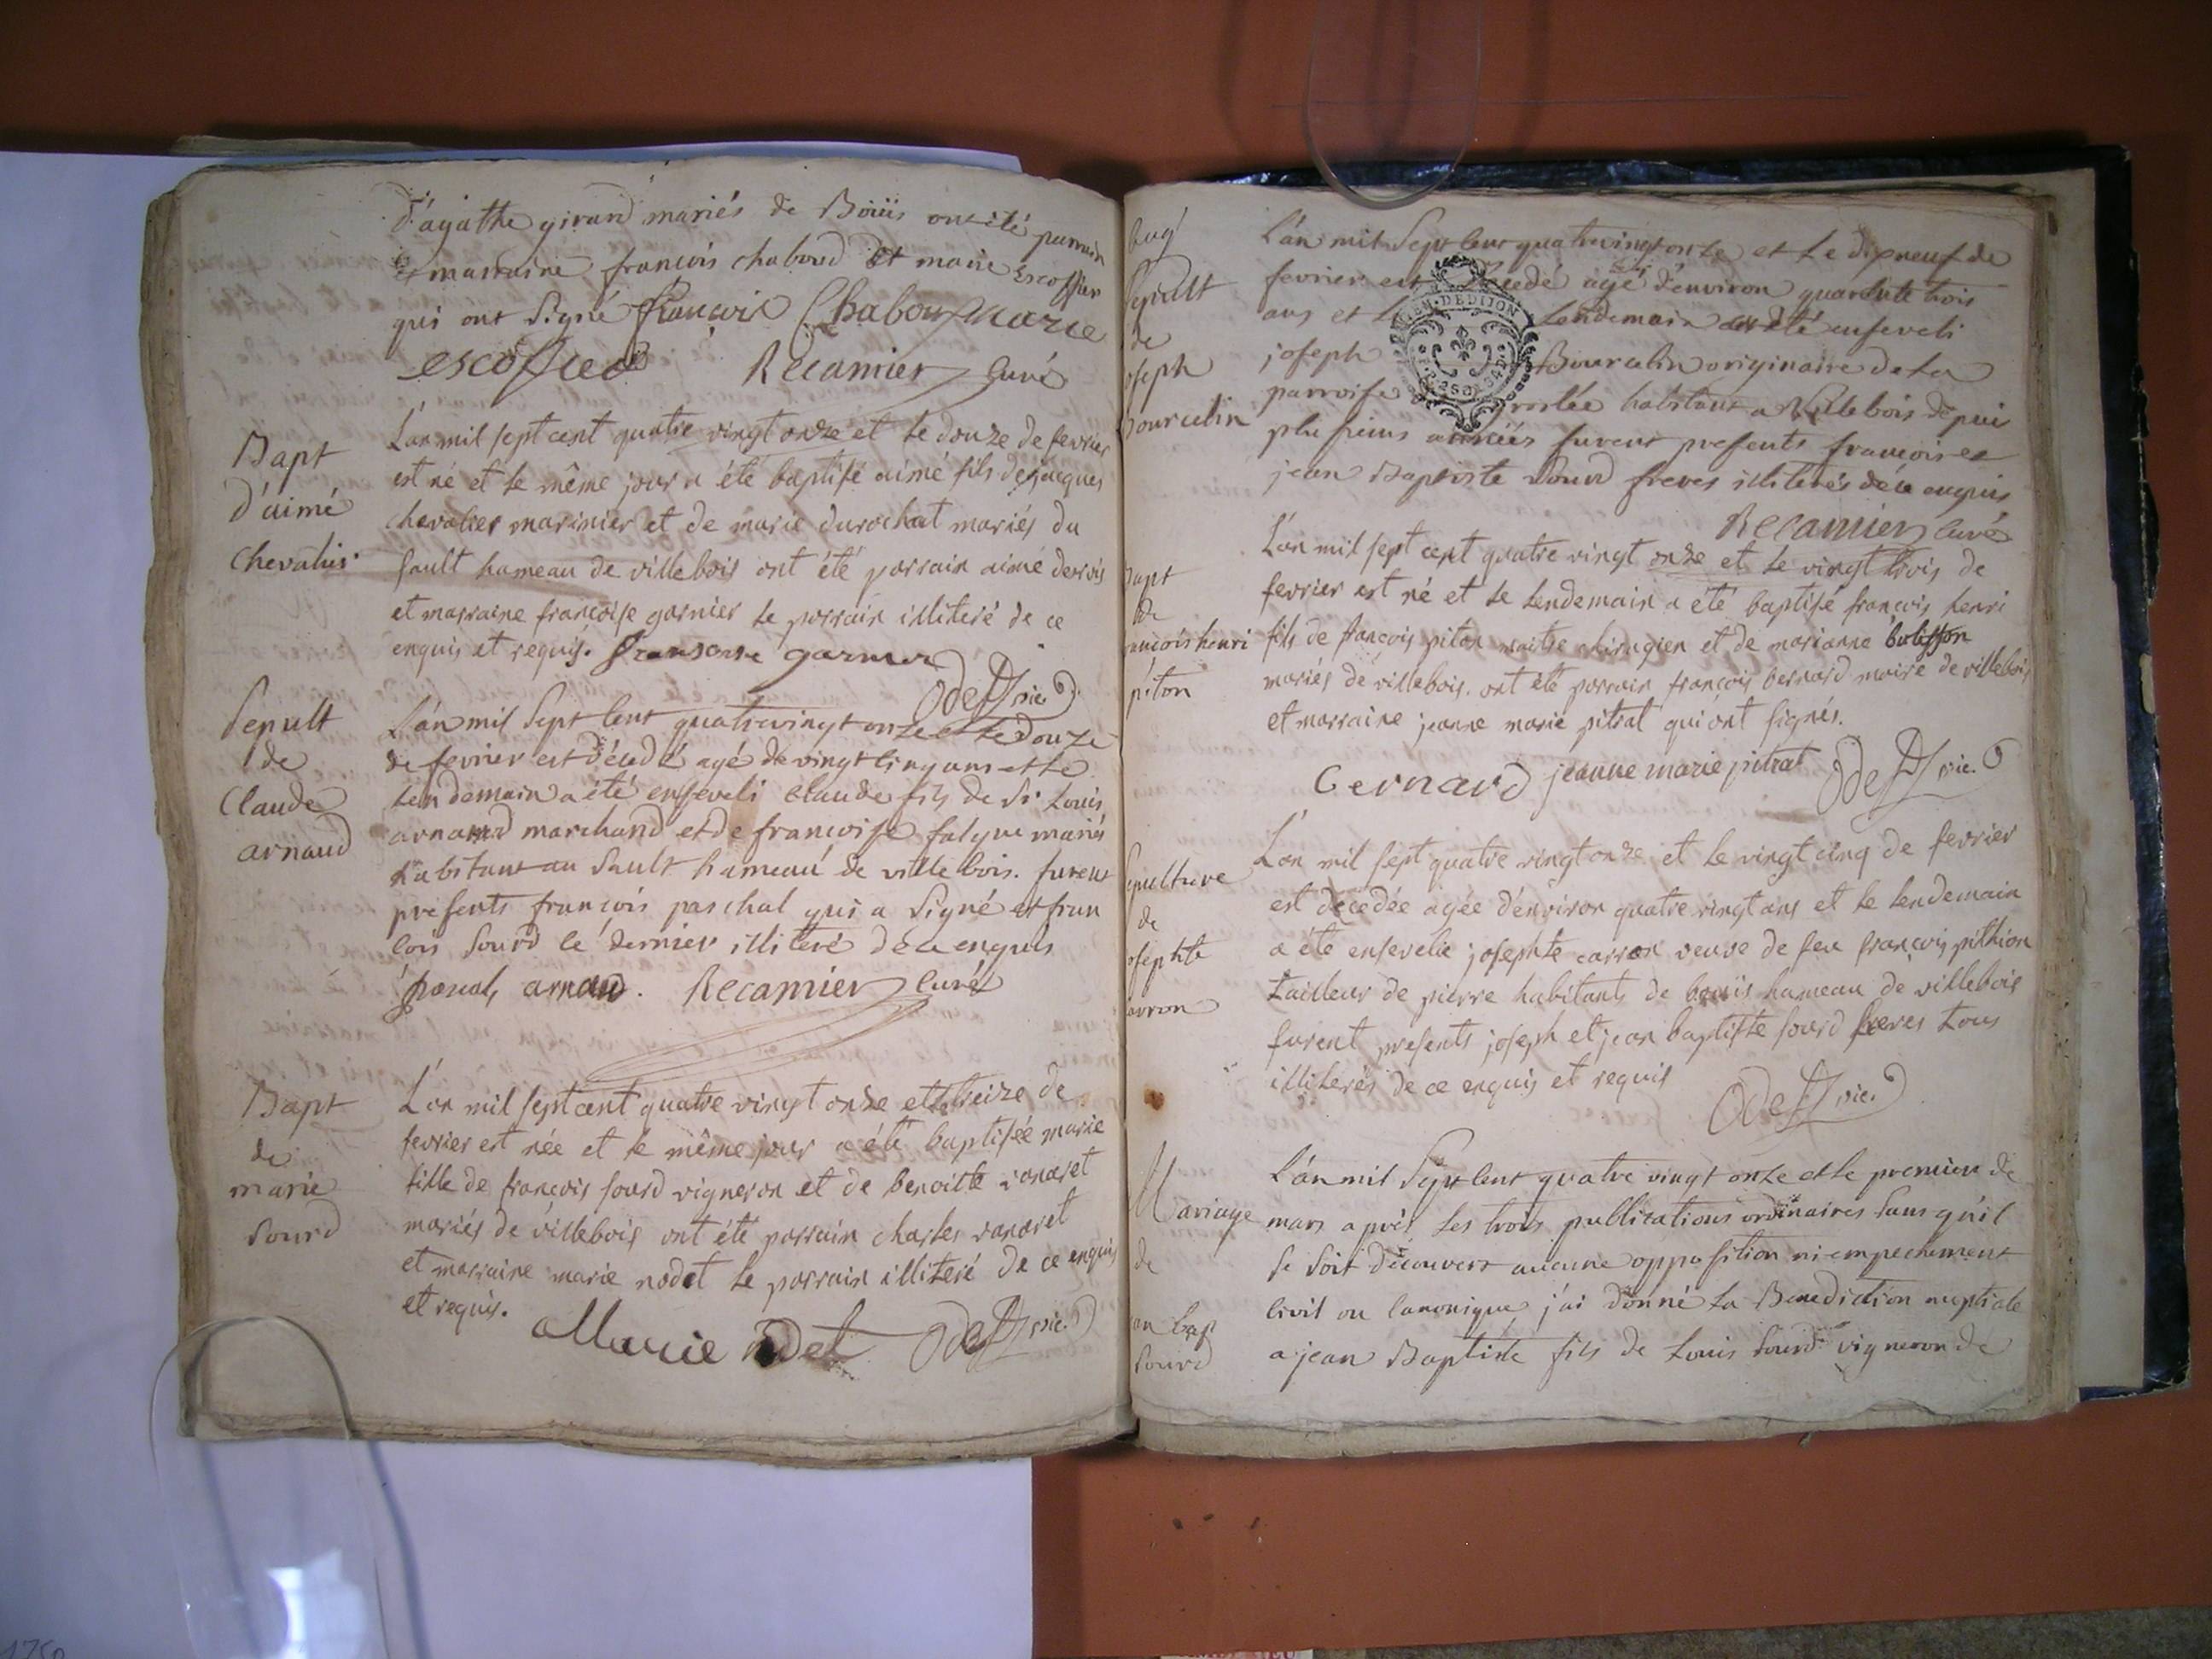 d'agathe girard mariés de Boüis ont été parrain
et marraine françois chaboud et marie Escoffier
qui ont signé françois Chabou marie
escoffier Récamier curé
Bapt
d'aimé
chevalier
L'an mil sept cent quatre vingt onze et le douze de fevrier
est né et le même jour a été baptisé aimé fils de jacques
chevalier marinier et de marie durochat mariés du
sault hameau de villebois ont été parrain aimé dervis
et marraine françoise garnier le parrain illiteré de ce
enquis et requis. fransoise garnier
vic.
Sepult
de
Claude
arnaud
L'an mil sept cent quatrevingt onze et le douze
de fevrier est décedé agé de vingt cinq ans et le
lendemain a été enseveli claude fils de Sr Louis
arnaud marchand et de françoise falque mariés
habitant au Sault hameau de villebois. furent
présents françois paschal qui a signé et fran
cois Sourd ce dernier illiteré de ce enquis
pascal, arnaud. Récamier curé
Bapt
de
marie
Sourd
L'an mil sept cent quatre vingt onze et le treize de
fevrier est née et le même jour a été baptisée marie
fille de françois sourd vigneron et de benoitte ranaret
mariés de villebois ont été parrain charles ranaret
et marraine marie nodet le parrain illiteré de ce enquis
et requis.
Marie nodet vic.
bug
Sepult
de
oseph
bourcelin
L'an mil sept cent quatrevingt onze et le dixneuf de
fevrier est décedé agé d'environ quarante trois
ans et le lendemain a été enseveli
joseph Bourcelin originaire de la
parroise groslée habitant a Villebois depuis
plusieurs années furent presents françois et
jean Baptiste Sourd freres illiterés de ce enquis
Récamier curé
Bapt
de
ancois henri
piton
L'an mil sept cent quatre vingt onze et le vingt trois de
fevrier est né et le lendemain a été baptisé françois henri
fils de françois piton maitre chirugien et de marianne balisson
mariés de villebois. ont été parrain françois bernard maire de villebois
et marraine jeanne marie pitrat qui ont signés.
Bernard jeanne marie pitrat vic.
epulture
de
osephte
arron
L'an mil sept quatre vingt onze et le vingt cinq de fevrier
est decedée agée d'environ quatre vingt ans et le lendemain
a été ensevelie josephte carron veuve de feu françois pithion
tailleur de pierre habitants de bouis hameau de villebois
furent presents joseph et jean baptiste sourd freres tous
illiterés de ce enquis et requis
vic.
Mariage
de
an bap
Sourd
L'an mil Sept cent quatre vingt onze et le premier de
mars après les trois publications ordinaires sans qu'il
se soit découvert aucune opposition ni empechement
civil ou canonique, j'ai donné la Benediction nuptiale
a jean Baptiste fils de Louis Sourd vigneron de